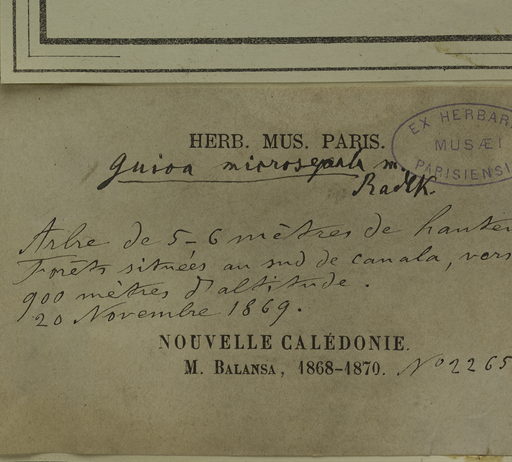 HERB. MUS. PARIS.
Guioa microsepala m.
Radlk.
EX HERBARI
MUSÆI
PARISIENSI
Arbre de 5-6 mètres de hauteu
Forêts situées au sud de canala, vers
900 mètres d'altitude.
20 Novembre 1869.
NOUVELLE CALÉDONIE.
M. BALANSA, 1868-1870. No 2265